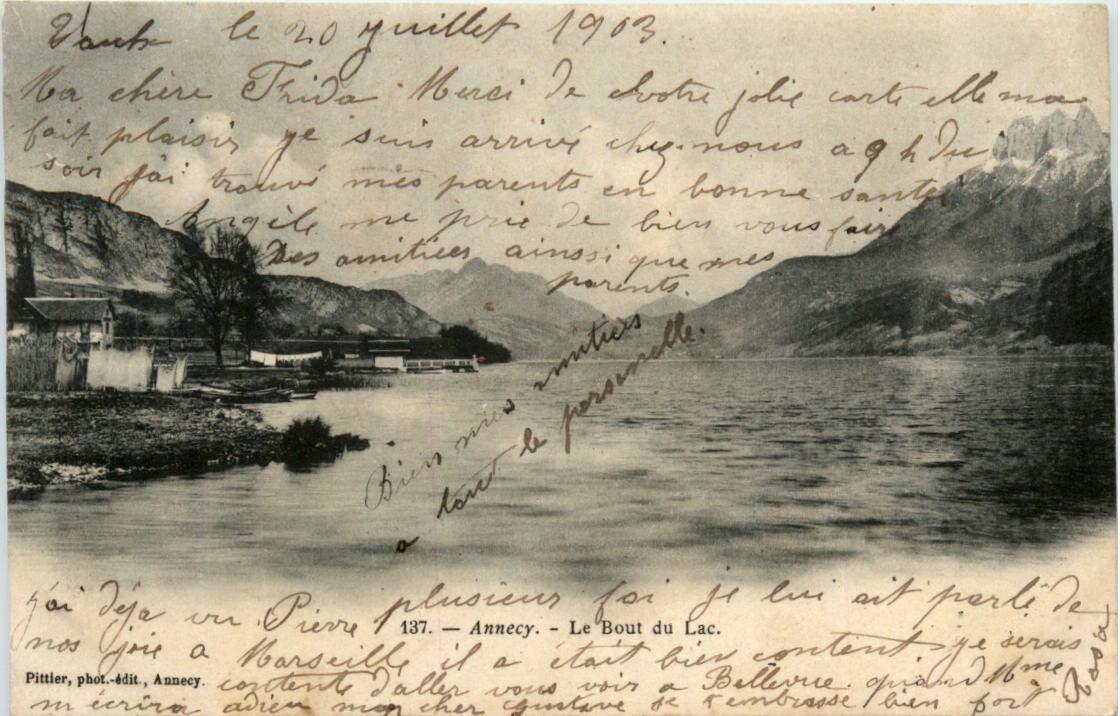 le 20 juillet 1903.
Ma chère Frida Merci de votre jolie carte elle ma
fait plaisir je suis arrivé chez-nous a 9 h du
soir j'ai trouvé mes parents en bonne santé
Angèle me prie de bien vous fair
des amitiées ainssi que mes
parents.
Bien mes amitiers
a tout le personelle.
j'ai déja vu Pierre plusieur foi je lui ait parlé de
137. — Annecy. - Le Bout du Lac.
nos joie a Marseille il a était bien content je serais
Pittier, phot.-édit, Annecy.
contente d'aller vous voir a Bellevue quand Mme
m'écrira adieu mon cher gustave je t'embrasse bien fort
Rosa